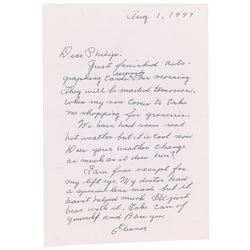 Aug. 1, 1997
Dear Philip:
Just finished auto-
graphing cards received this morning.
They will be mailed tomorrow.
when my son comes to take
me shopping for groceries.
We have had some real
hot weather but it is cool now
Does your weather change
as much as it does here?
I am fine except for
my left eye. My doctor had
a special lens made but it
hasn't helped much. I'll just
bear with it. Take care of
yourself and Bless you,
Eleanor